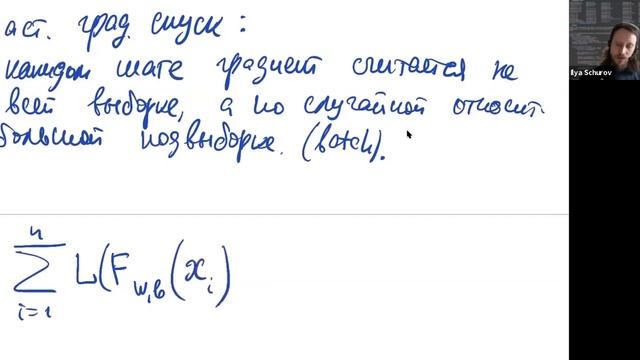 аст. град. спуск:
каждом шаге градиент считается не
всей выборке, а по случайной относит.
большой подвыборке. (batch).
Ilya Schurov
n
∑ L(F_{w,b}(x_i)
i=1